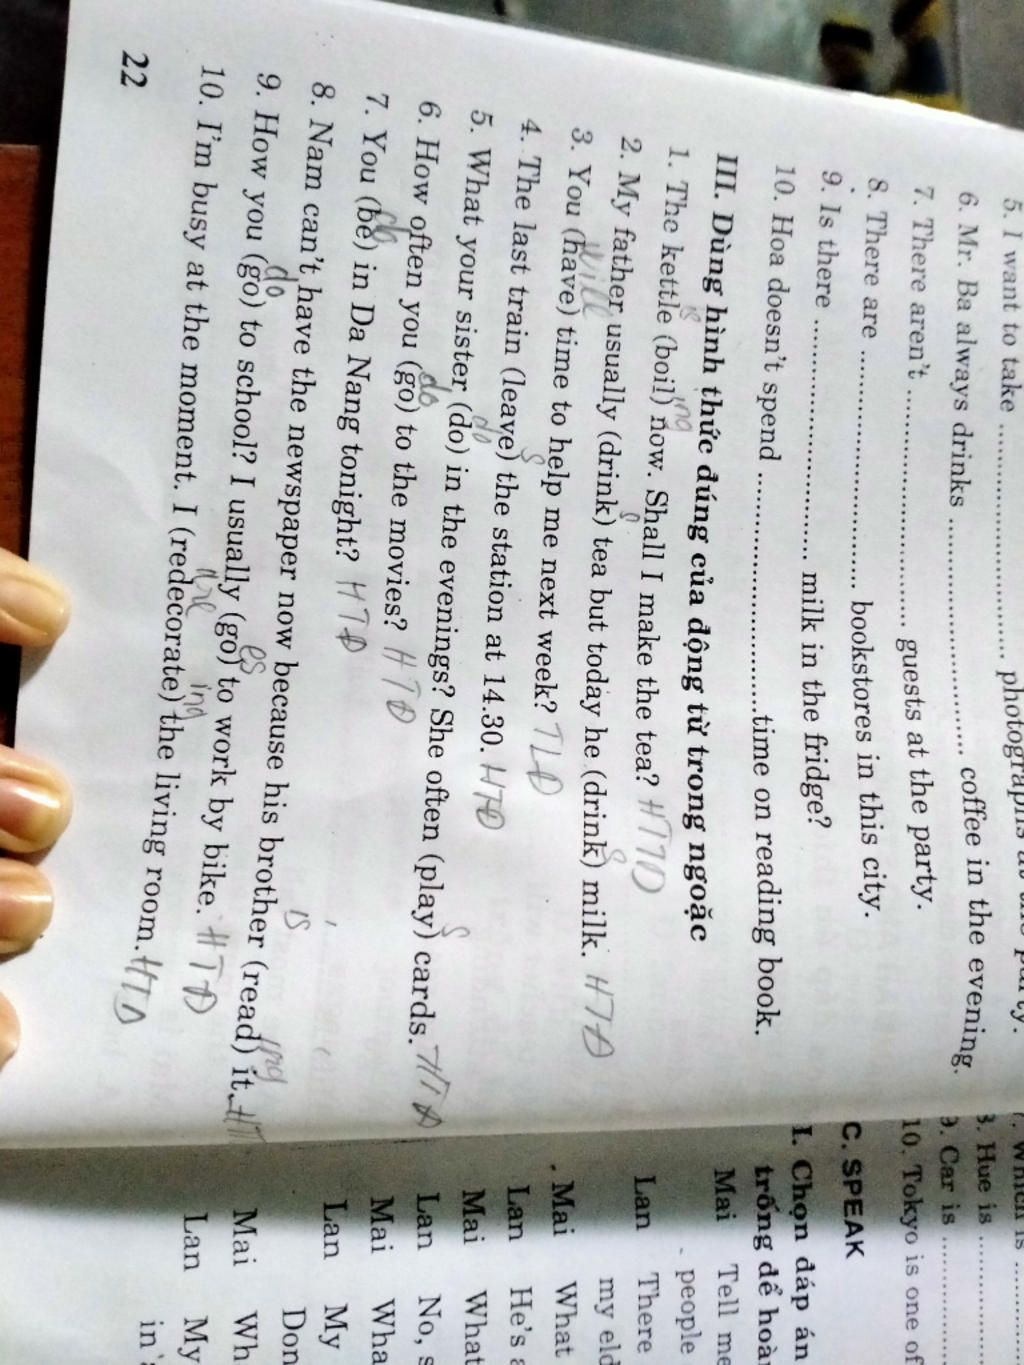 5. I want to take .................................. photographs at the party.
6. Mr. Ba always drinks .................................. coffee in the evening.
7. There aren't .................................. guests at the party.
8. There are .................................. bookstores in this city.
9. Is there .................................. milk in the fridge?
10. Hoa doesn't spend ..................................time on reading book.
III. Dùng hình thức đúng của động từ trong ngoặc
is ing
1. The kettle (boil) now. Shall I make the tea? HTTD
s s
2. My father usually (drink) tea but today he (drink) milk. HTĐ
will
3. You (have) time to help me next week? TLĐ
s
4. The last train (leave) the station at 14.30. HTĐ
do s
5. What your sister (do) in the evenings? She often (play) cards. HTĐ
do
6. How often you (go) to the movies? HTĐ
do
7. You (be) in Da Nang tonight? HTĐ
is ing
8. Nam can't have the newspaper now because his brother (read) it. HT
do es
9. How you (go) to school? I usually (go) to work by bike. HTĐ
are ing
10. I'm busy at the moment. I (redecorate) the living room. HTĐ
22
is ............
Hue is ............
9. Car is ............
10. Tokyo is one of
C. SPEAK
I. Chọn đáp án
trống để hoàn
Mai Tell me
people
Lan There
my eld
Mai What
Lan He's a
Mai What
Lan No, s
Mai Wha
Lan My
Don
Mai Wh
Lan My
in